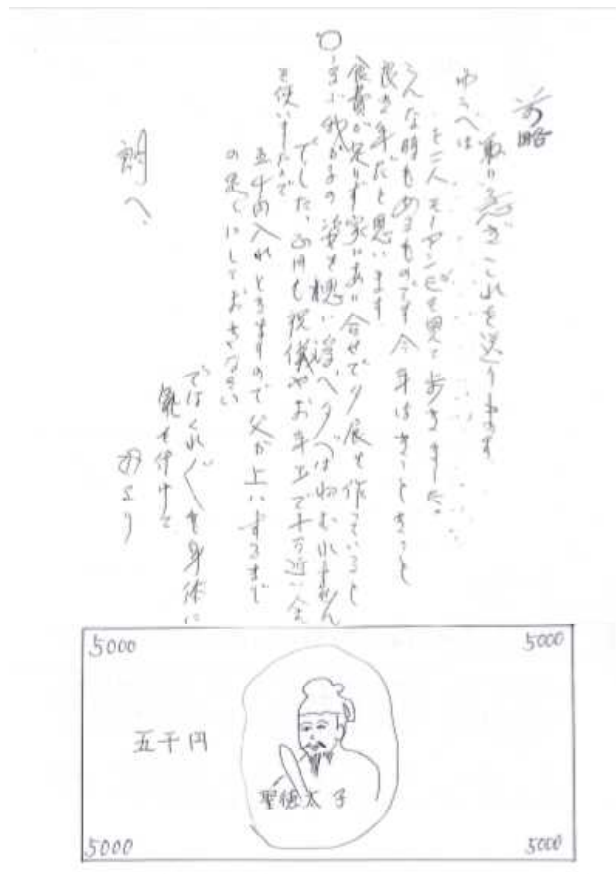 前略
取り急ぎこれを送ります
ゆうべは
を二人でーアンビを思て歩きました。
こんな時もあるものです今年はきっときっと
良き年だと思います
食費が足りず家にあり合せで夕展を作っていると
我が子の姿を想い浮べ夕べはねむれません
でした、正月も祝儀やお年玉で十万近い金
を使いましたので
五千円入れときますので父が上いするまで
の足しにしておきなさい
ではくれぐれも身体に
気を付けて
母より
朗へ、
5000
5000
五千円
聖徳太子
5000
5000